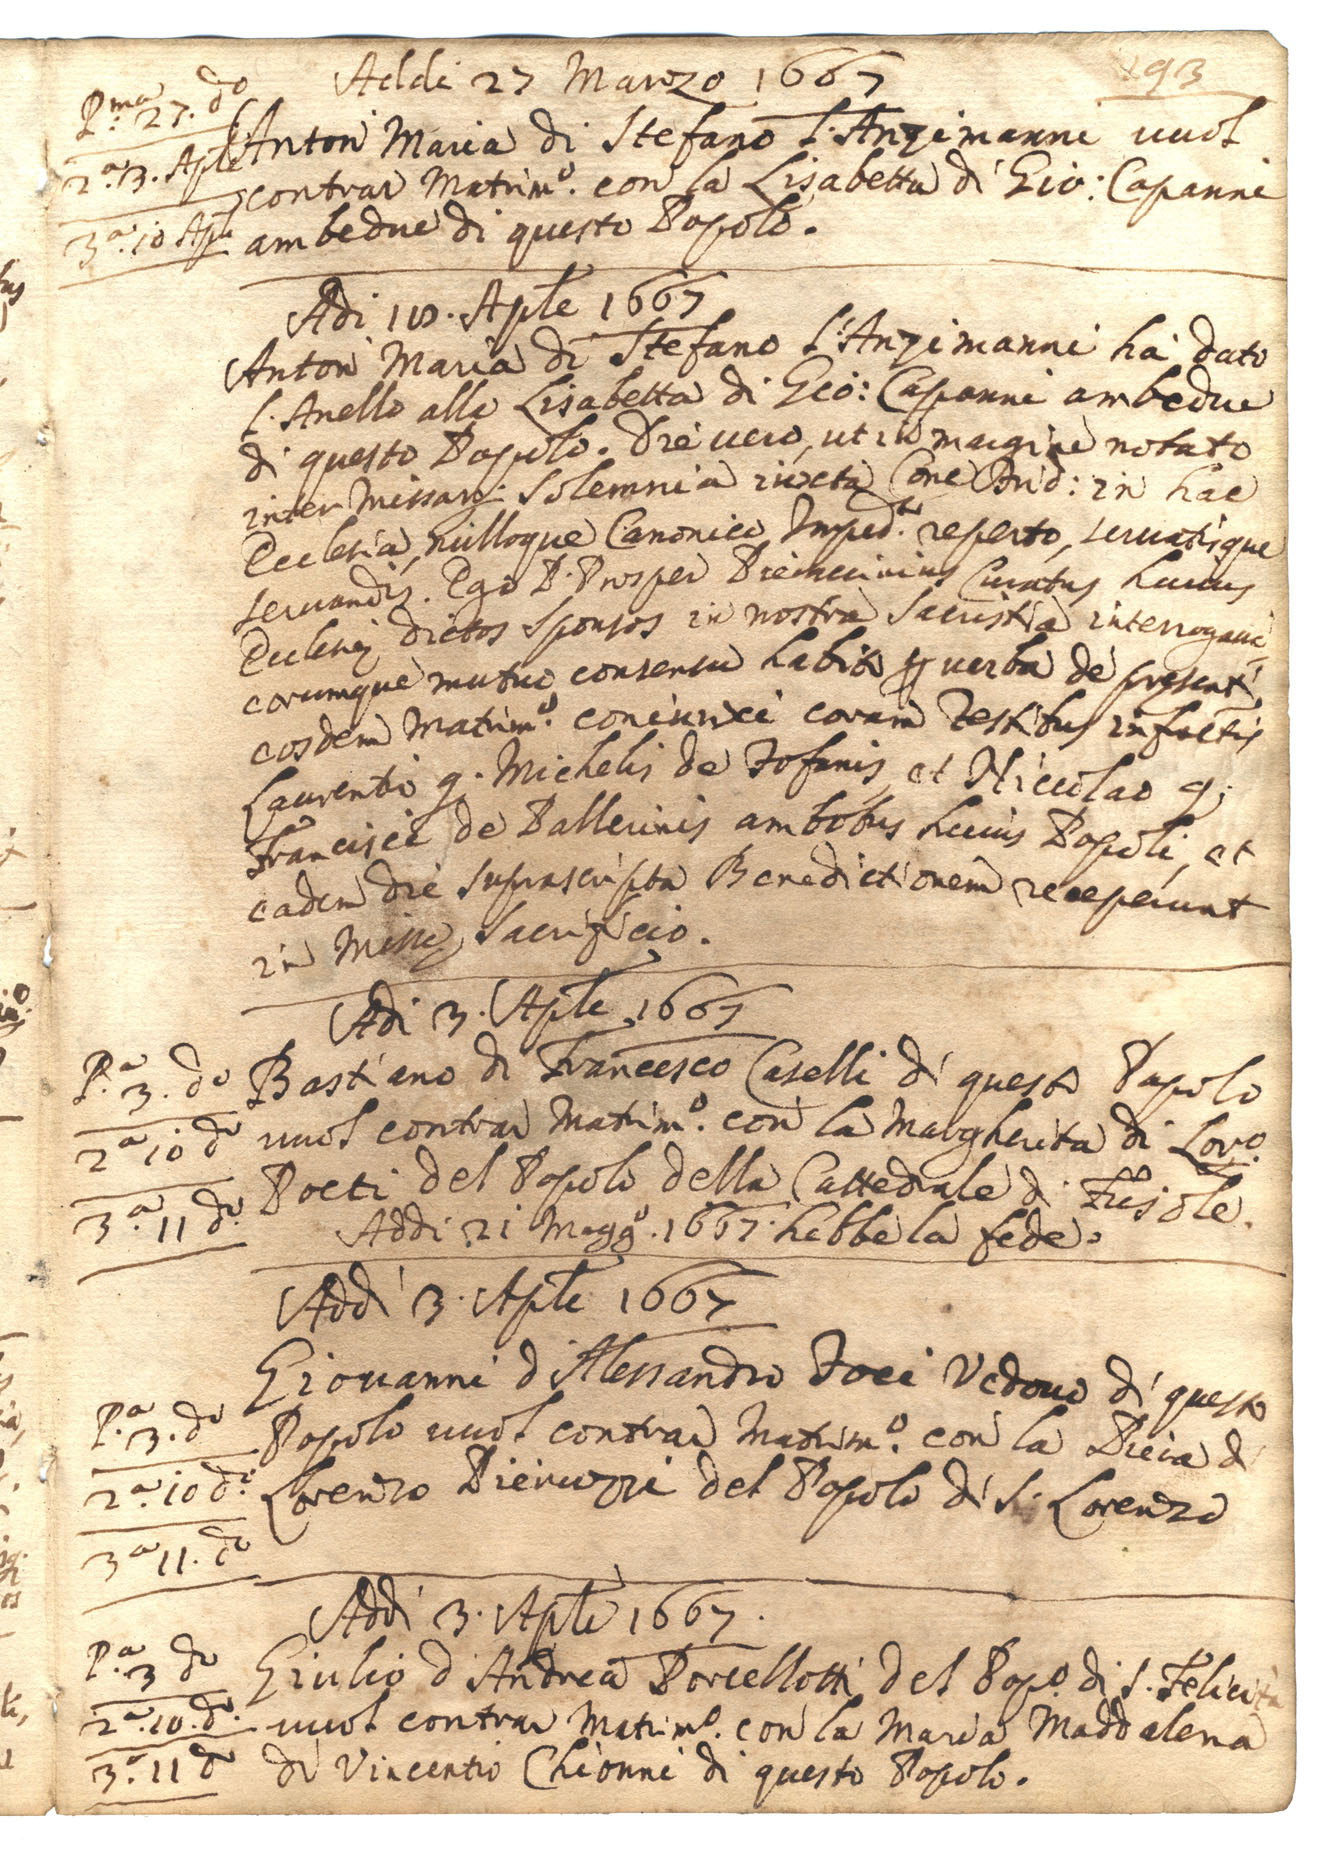 193
Addi 27 Marzo 1667
P.ma 27. do
Anton Maria di Stefano l'Anzimanni vuol
2.a 3. Aple
contrar Matrim.o con la Lisabetta di Gio: Capanni
3.a 10 Aple
ambedue di questo Popolo.
Adi 10. Aple 1667
Anton Maria di Stefano l'Anzimanni ha dato
l'Anello alla Lisabetta di Gio: Capanni ambedue
di questo Popolo. Die uero, ut in margine notato
inter Missarum Solemnia iuxta Conc. Trid: in hac
Ecclesia, nulloque Canonico Imped.to reperto, seruatisque
seruandis. Ego P. Prosper Curatus huius
Ecclesię dictos Sponsos in nostra Sacristia interrogaui
eorumque mutuo consensu habito per uerba de presenti,
eosdem Matrim.o coniunxi coram Testibus infrãtis
Laurentio q. Michelis de Tofanis, et Niccolao q.
Francisci de Pallerinis ambobus huius Popoli, et
eadem die suprascripta Benedictionem receperunt
in Missę Sacrificio.
Adi 3. Aple 1667
P.a 3. do
Bastiano di Francesco Caselli di questo Popolo
2.a 10 do
vuol contrar Matrim.o con la Margherita di Lor.o
Poeti del Popolo della Cattedrale di Fiesole.
3.a 11 do.
Addi 21 Magg.o 1667. hebbe la fede.
Addi 3. Aple 1667
Giovanni d'Alessandro Foci Vedovo di questo
P.a 3. do
Popolo vuol contrar Matrim.o con la Piera di
2.a 10 do.
Lorenzo Pieruzzi del Popolo di S. Lorenzo
3.a 11. do
Addi 3. Aple 1667.
P.a 3 do
Giulio d'Andrea Porcellotti del Pop.o di S. Felicita
2.a 10. do.
vuol contrar Matrim.o con la Maria Maddalena
3.a 11 do
di Vincentio Chionni di questo Popolo.